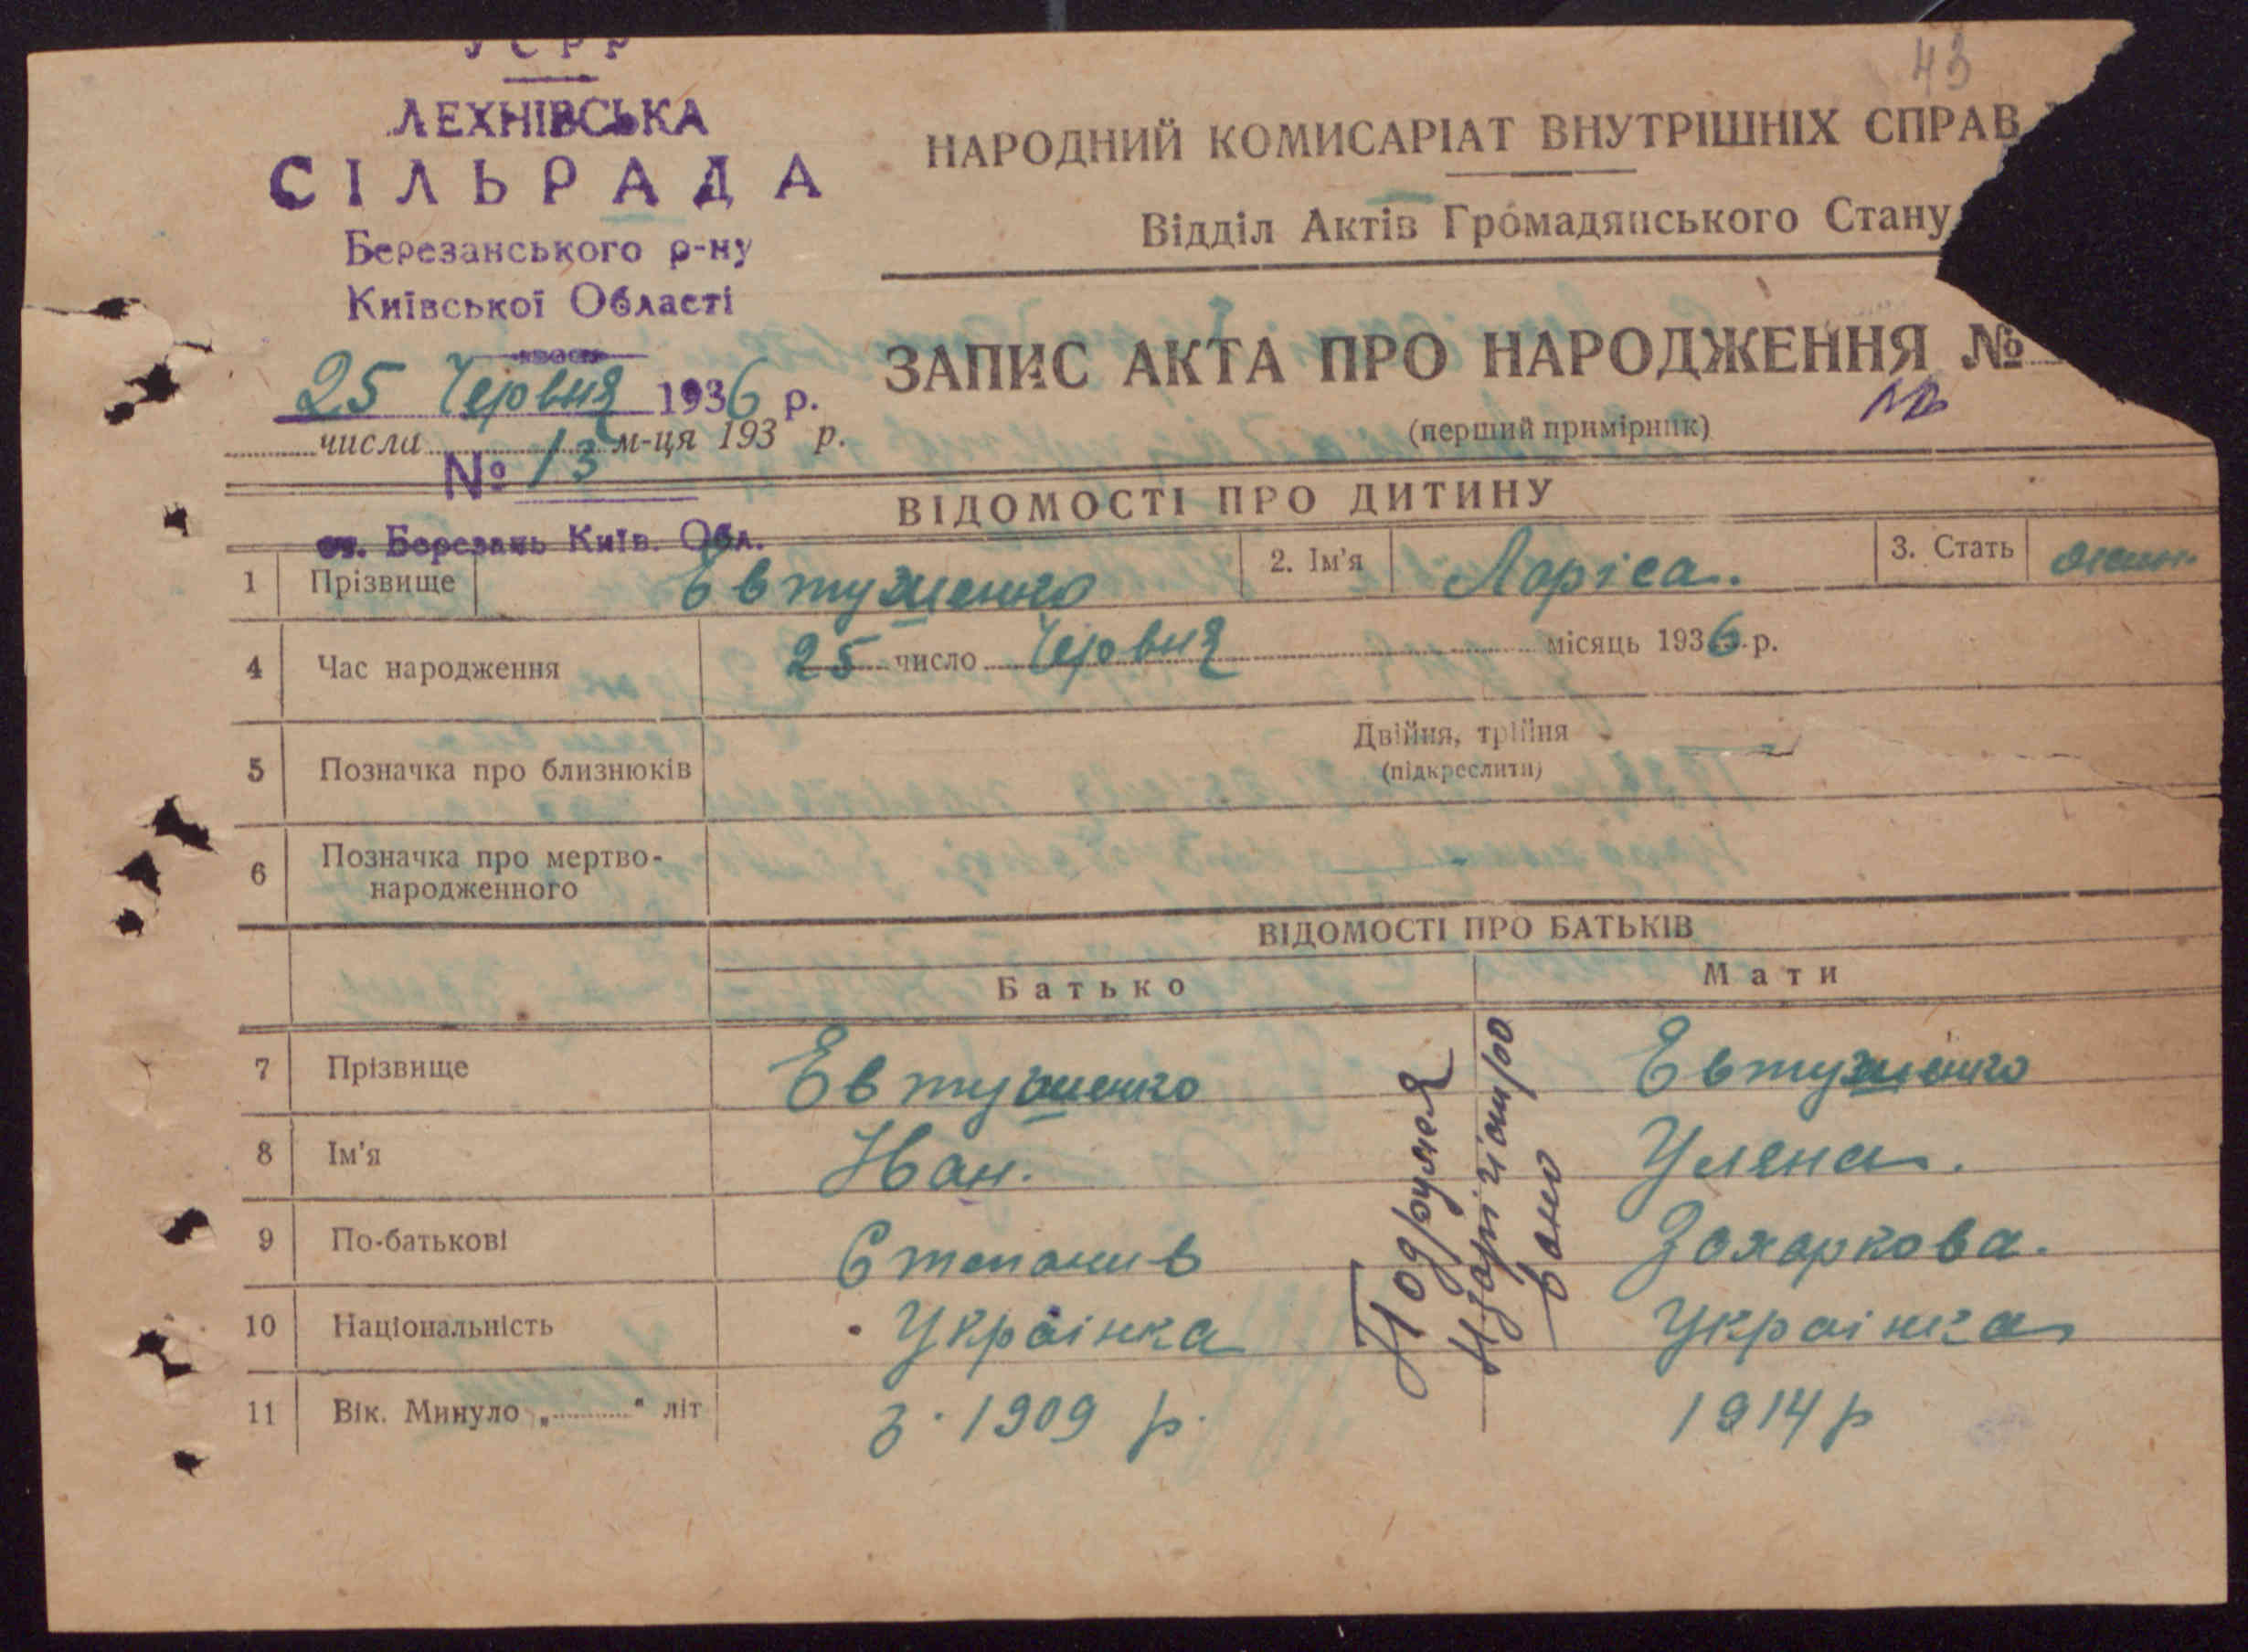 43
УСРР
ЛЕХНІВСЬКА
СІЛЬРАДА
Березанського р-ну
Київської Області
25 Червня 1936 р.
числа м-ця 193 р.
№ 13
ст. Березань Київ. Обл.
НАРОДНИЙ КОМИСАРІАТ ВНУТРІШНІХ СПРАВ
Відділ Актів Громадянського Стану
ЗАПИС АКТА ПРО НАРОДЖЕННЯ №
(перший примірник)
ВІДОМОСТІ ПРО ДИТИНУ
1 Прізвище Евтушенко 2. Ім'я Ларіса. 3. Стать жін.
4 Час народження 25 число Червня місяць 1936 р.
5 Позначка про близнюків Двійня, трійня
(підкреслити)
6 Позначка про мертво-
народженного
ВІДОМОСТІ ПРО БАТЬКІВ
Батько Мати
7 Прізвище Евтушенко Евтушенко
8 Ім'я Иван. Уляна.
9 По-батькові Степанив Захаркова.
10 Національність Украінка Украінка
11 Вік. Минуло „ " літ з. 1909 р. 1914 р